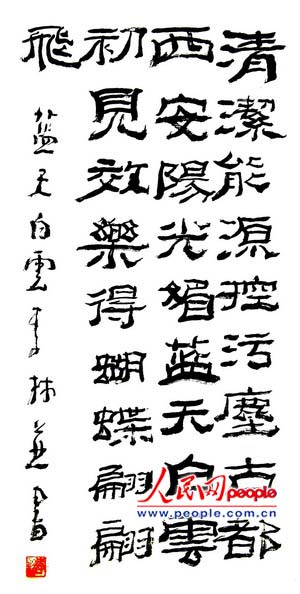 清潔能源控污塵古都
西安陽光媚藍天白雲
初見效樂得蝴蝶翩翩
飛
藍天白雲
人民网 people
www.people.com.cn